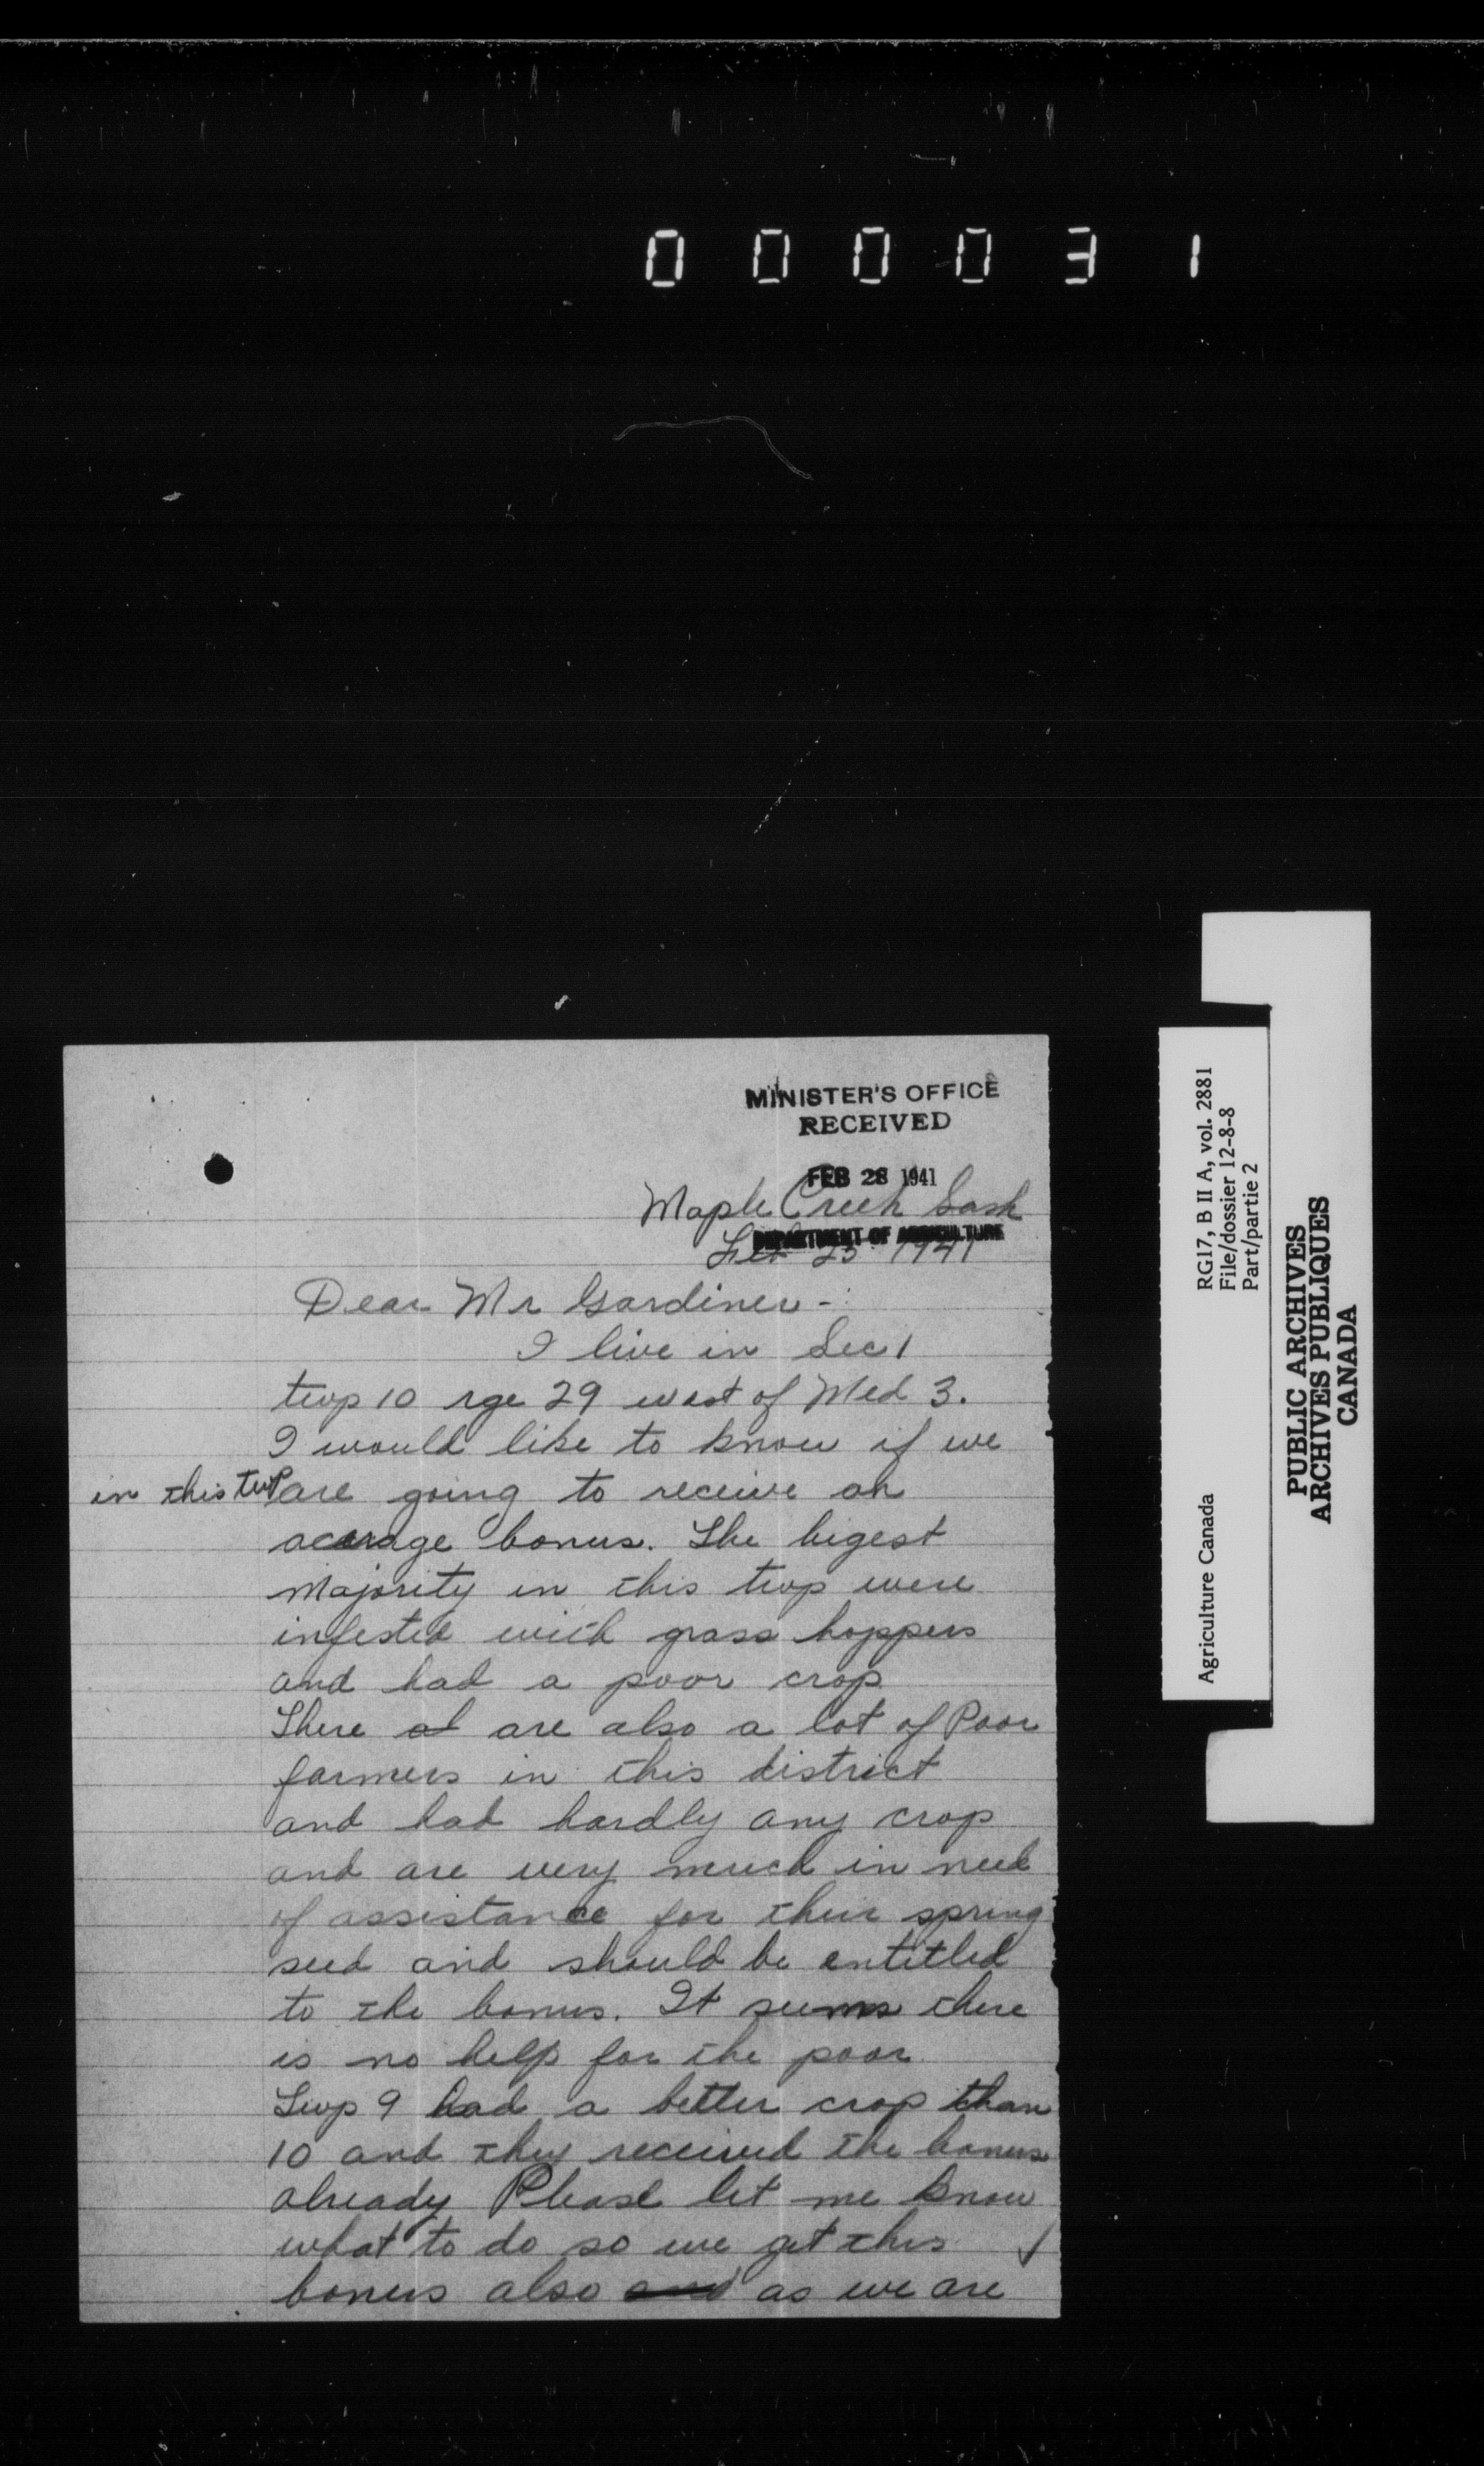 000031
MINISTER'S OFFICE
RECEIVED
FEB 28 1941
Maple Creek Sask
DEPARTMENT OF AGRICULTURE
Feb 25 1941
Dear Mr Gardiner -
I live in Sec 1
twp 10 rge 29 west of Med 3.
I would like to know if we
in this twp are going to receive an
acerage bonus. The bigest
majority in this twp were
infested with grass hoppers
and had a poor crop
There al are also a lot of Poor
farmers in this district
and had hardly any crop
and are very much in need
of assistance for their spring
seed and should be entitled
to the bonus. It seems there
is no help for the poor
Twp 9 had a better crop than
10 and they received the bonus
already Please let me know
what to do so we get this
bonus also and as we are
RG17, B II A, vol. 2881
File/dossier 12-8-8
Part/partie 2
Agriculture Canada
PUBLIC ARCHIVES
ARCHIVES PUBLIQUES
CANADA